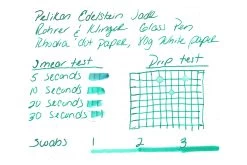 Pelikan Edelstein Jade
Rohrer & Klinger Glass Pen
Rhodia dot paper, 80g White paper
Smear test
Drip test
5 seconds
10 seconds
20 seconds
30 seconds
Swabs 1 2 3